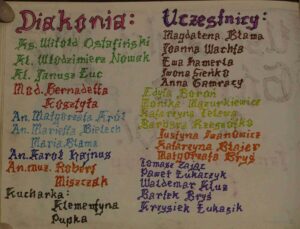 Diakonia:
Ks. Witold Ostafiński
Al. Włodzimierz Nowak
Al. Janusz Łuc
Mod. Bernadetta
Kosztyła
An. Małgorzata Król
An. Marietta Bielech
Maria Blama
An. Karol Hajnus
An. muz. Robert
Miszczak
Kucharka:
Klementyna
Pupka
Uczestnicy:
Magdalena Blama
Joanna Wachta
Ewa Hamerla
Iwona Sieńko
Anna Gameracy
Edyta Boroń
Monika Mazurkiewicz
Katarzyna
Barbara Rzegocka
Justyna Iwanowicz
Katarzyna Błajer
Małgorzata Bryś
Tomasz Zając
Paweł Łukaczyk
Waldemar Kluz
Bartek Bryś
Krzysiek Łukasik